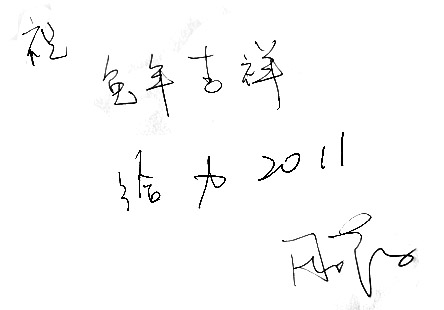 祝
兔年吉祥
给力 2011